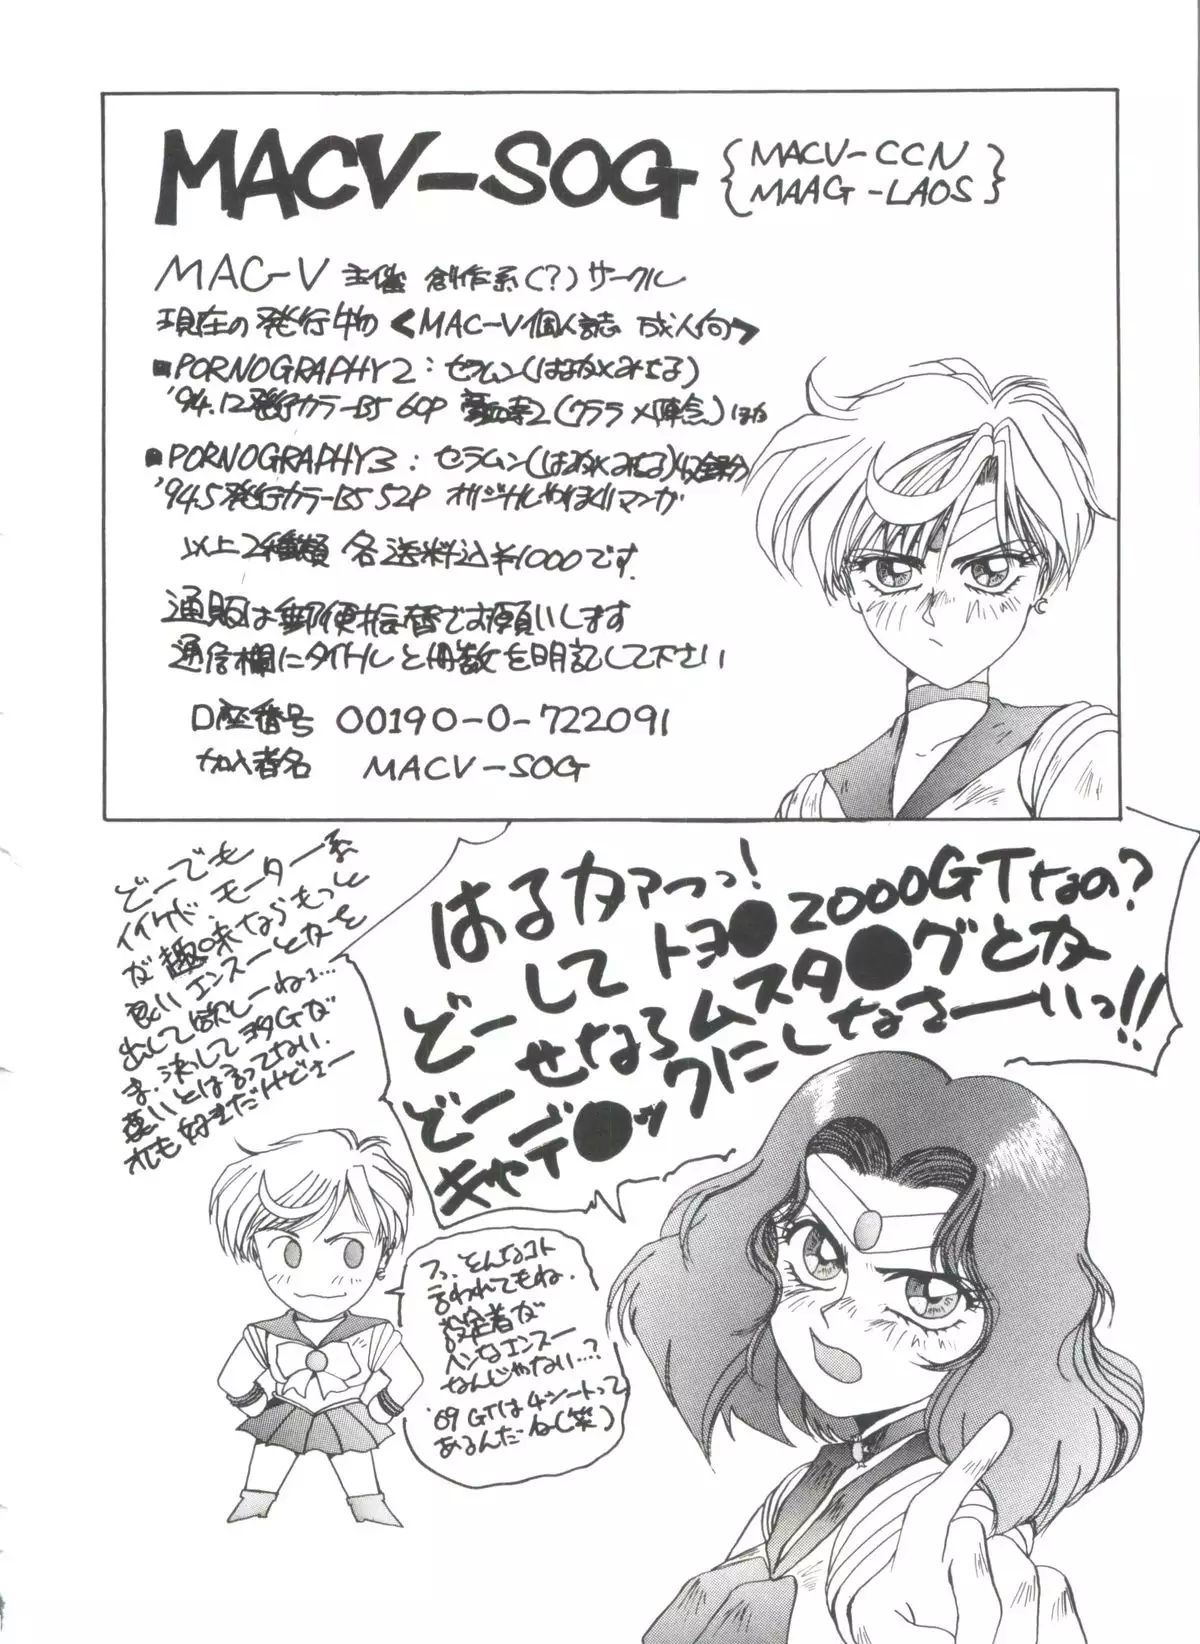 MACV-SOG
MACV-CCN
MAAG-LAOS
MAC-V 主催 創作系(?)サークル
現在の発行物 <MAC-V個人誌 成人向>
■PORNOGRAPHY2:セラムン(はるか×みちる)
'94.12発行カラーB5 60P
■PORNOGRAPHY3:セラムン(はるか×みちる)
'94.5発行カラーB5 52P オリジナルやおいマンガ
以上2種類 各送料込¥1000です.
通販は郵便振替でお願いします
通信欄にタイトルと冊数を明記して下さい
口座番号 00190-0-722091
加入者名 MACV-SOG
はるかァーっっ!
どーしてトヨ●2000GTなの?
どーせならムスタ●グとか
キャデ●ックにしなさーいっ!!
どーでも
イイケド、モーター系
が趣味ならもっと
良いエンスーとかを
出して欲しーねェ…
ま、決してヨタGが
悪いとはまってない.
オレも好きだけどさー
フっ、そんなコト
言われてもね.
設定者が
ヘンなエンスー
なんじゃない…?
'69 GTは4シートって
あるんだね(笑)